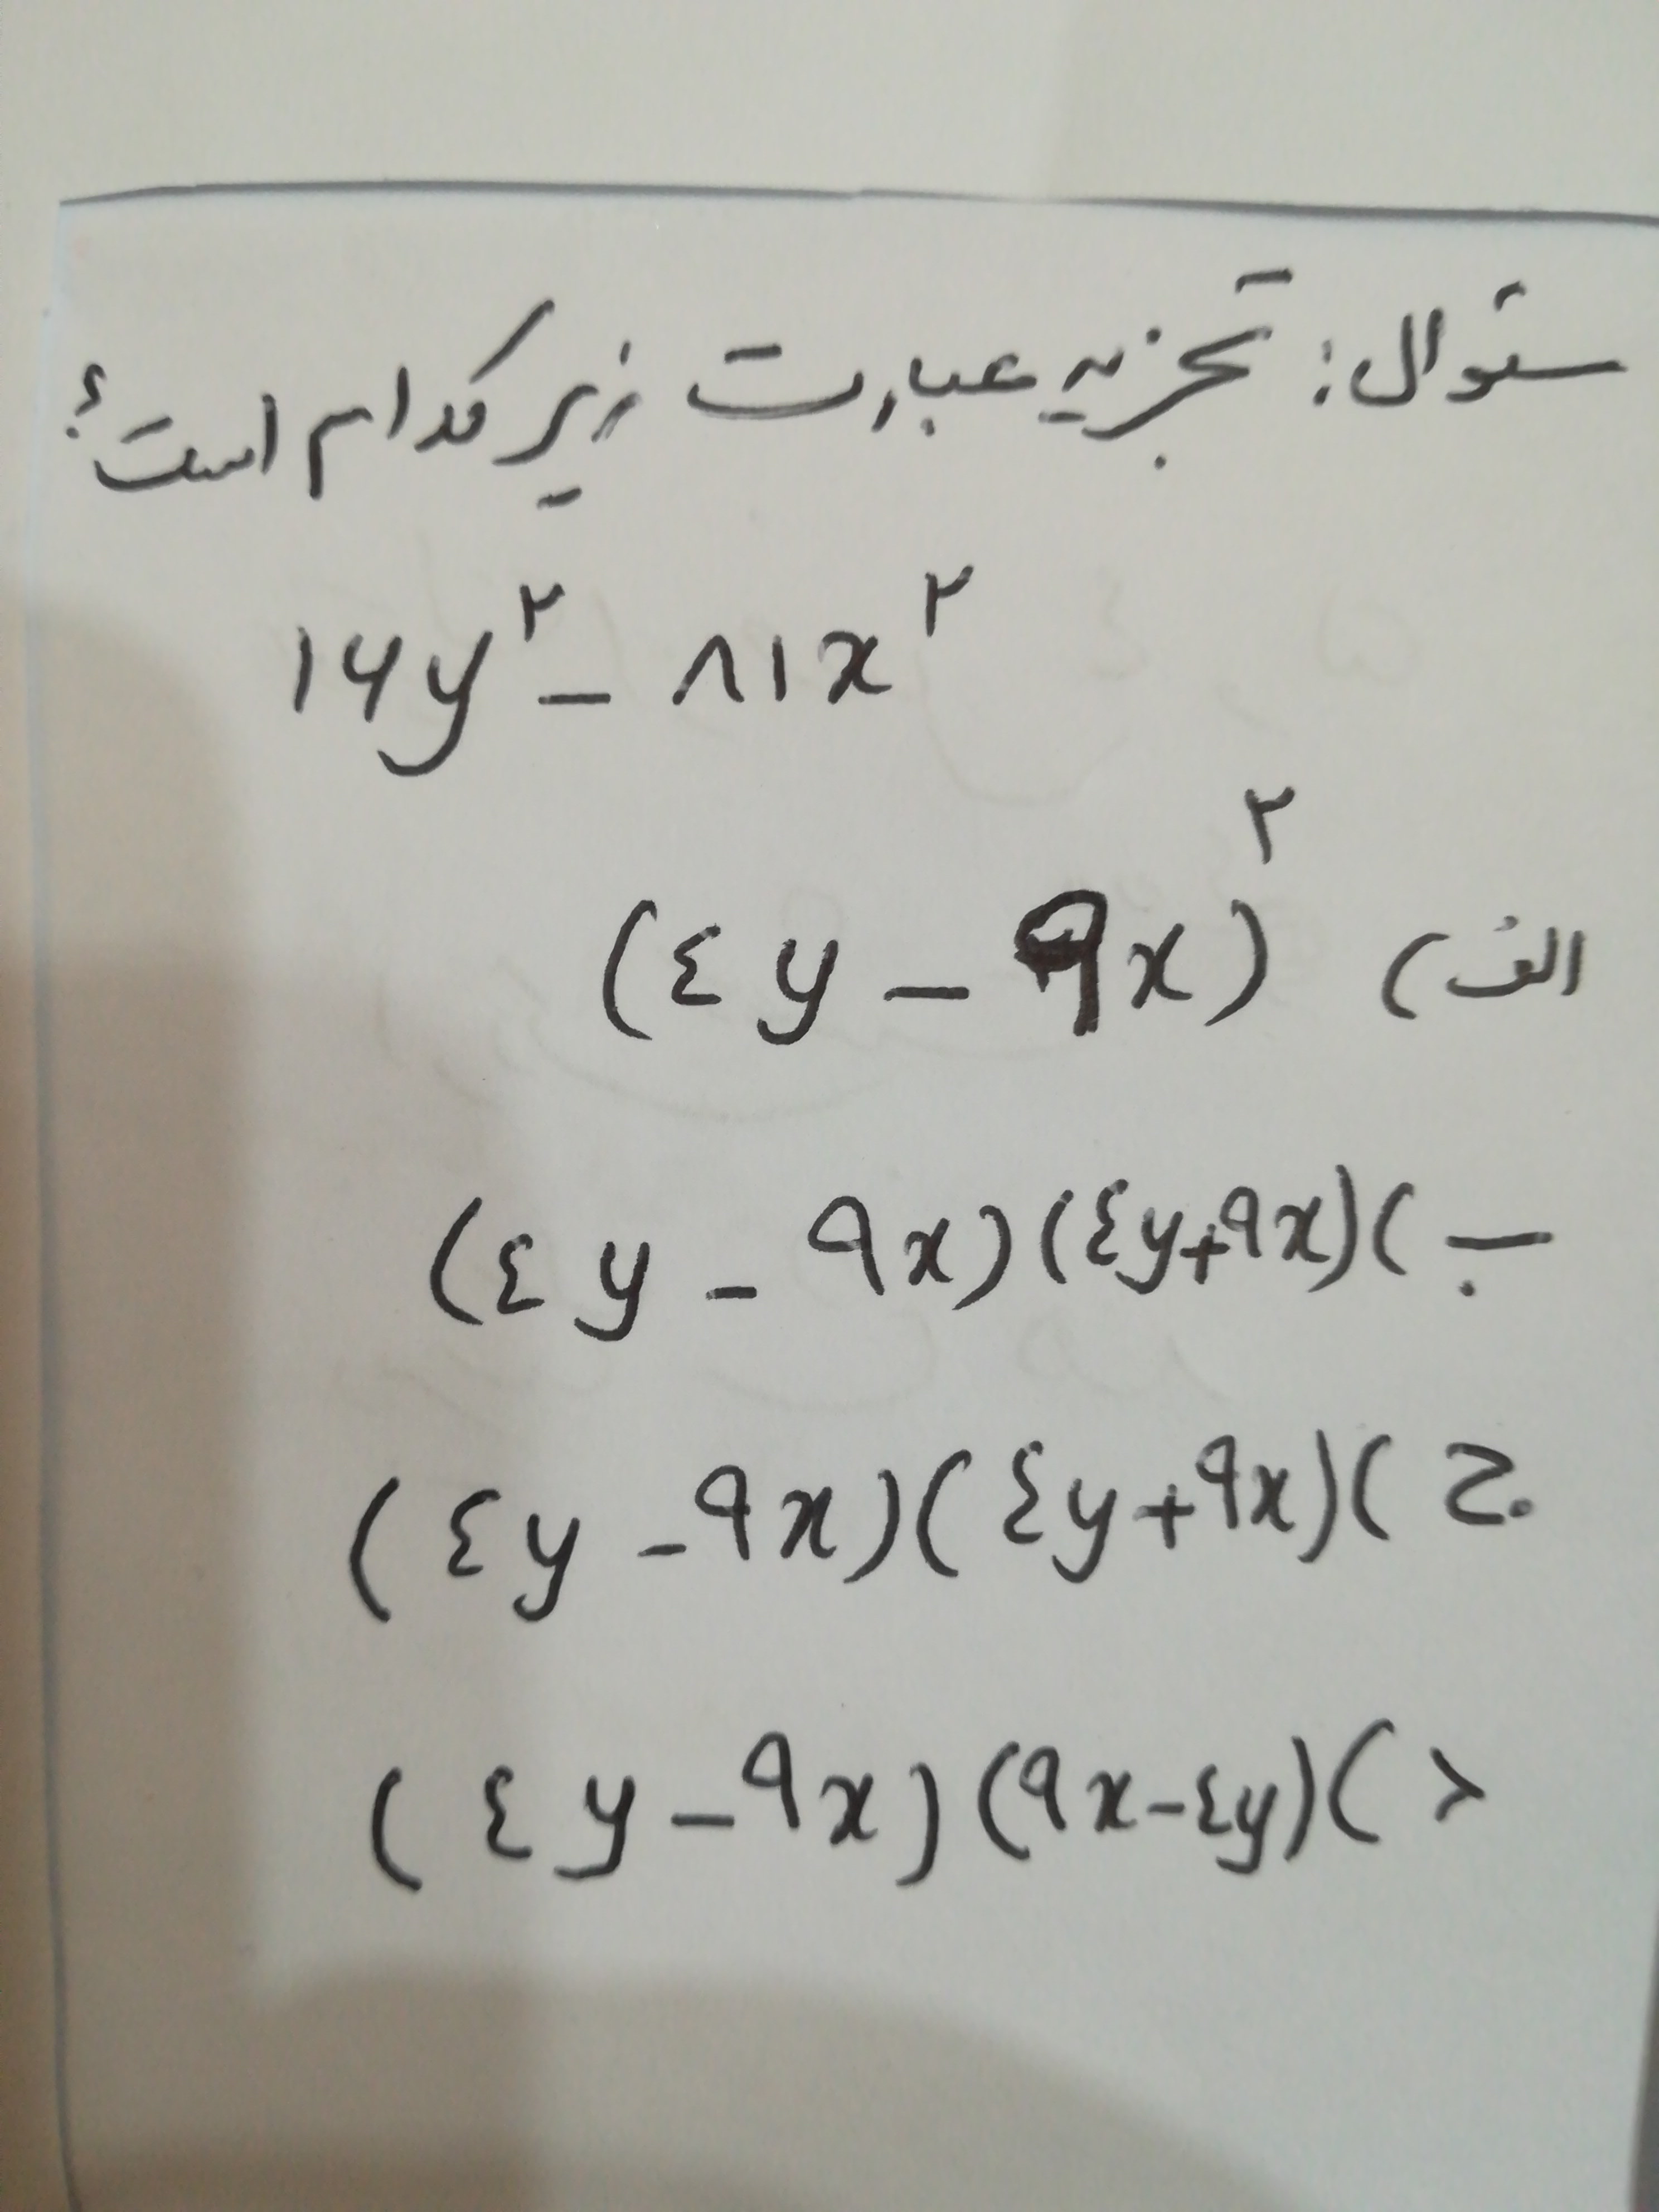 سئوال: تجزیه عبارت زیر کدام است؟
۱۶y^۲ - ۸۱x^۲
الف) (۴y - ۹x)^۲
ب) (۴y - ۹x)(۴y+۹x)
ج) (۴y - ۹x)(۴y+۹x)
د) (۴y - ۹x)(۹x-۴y)